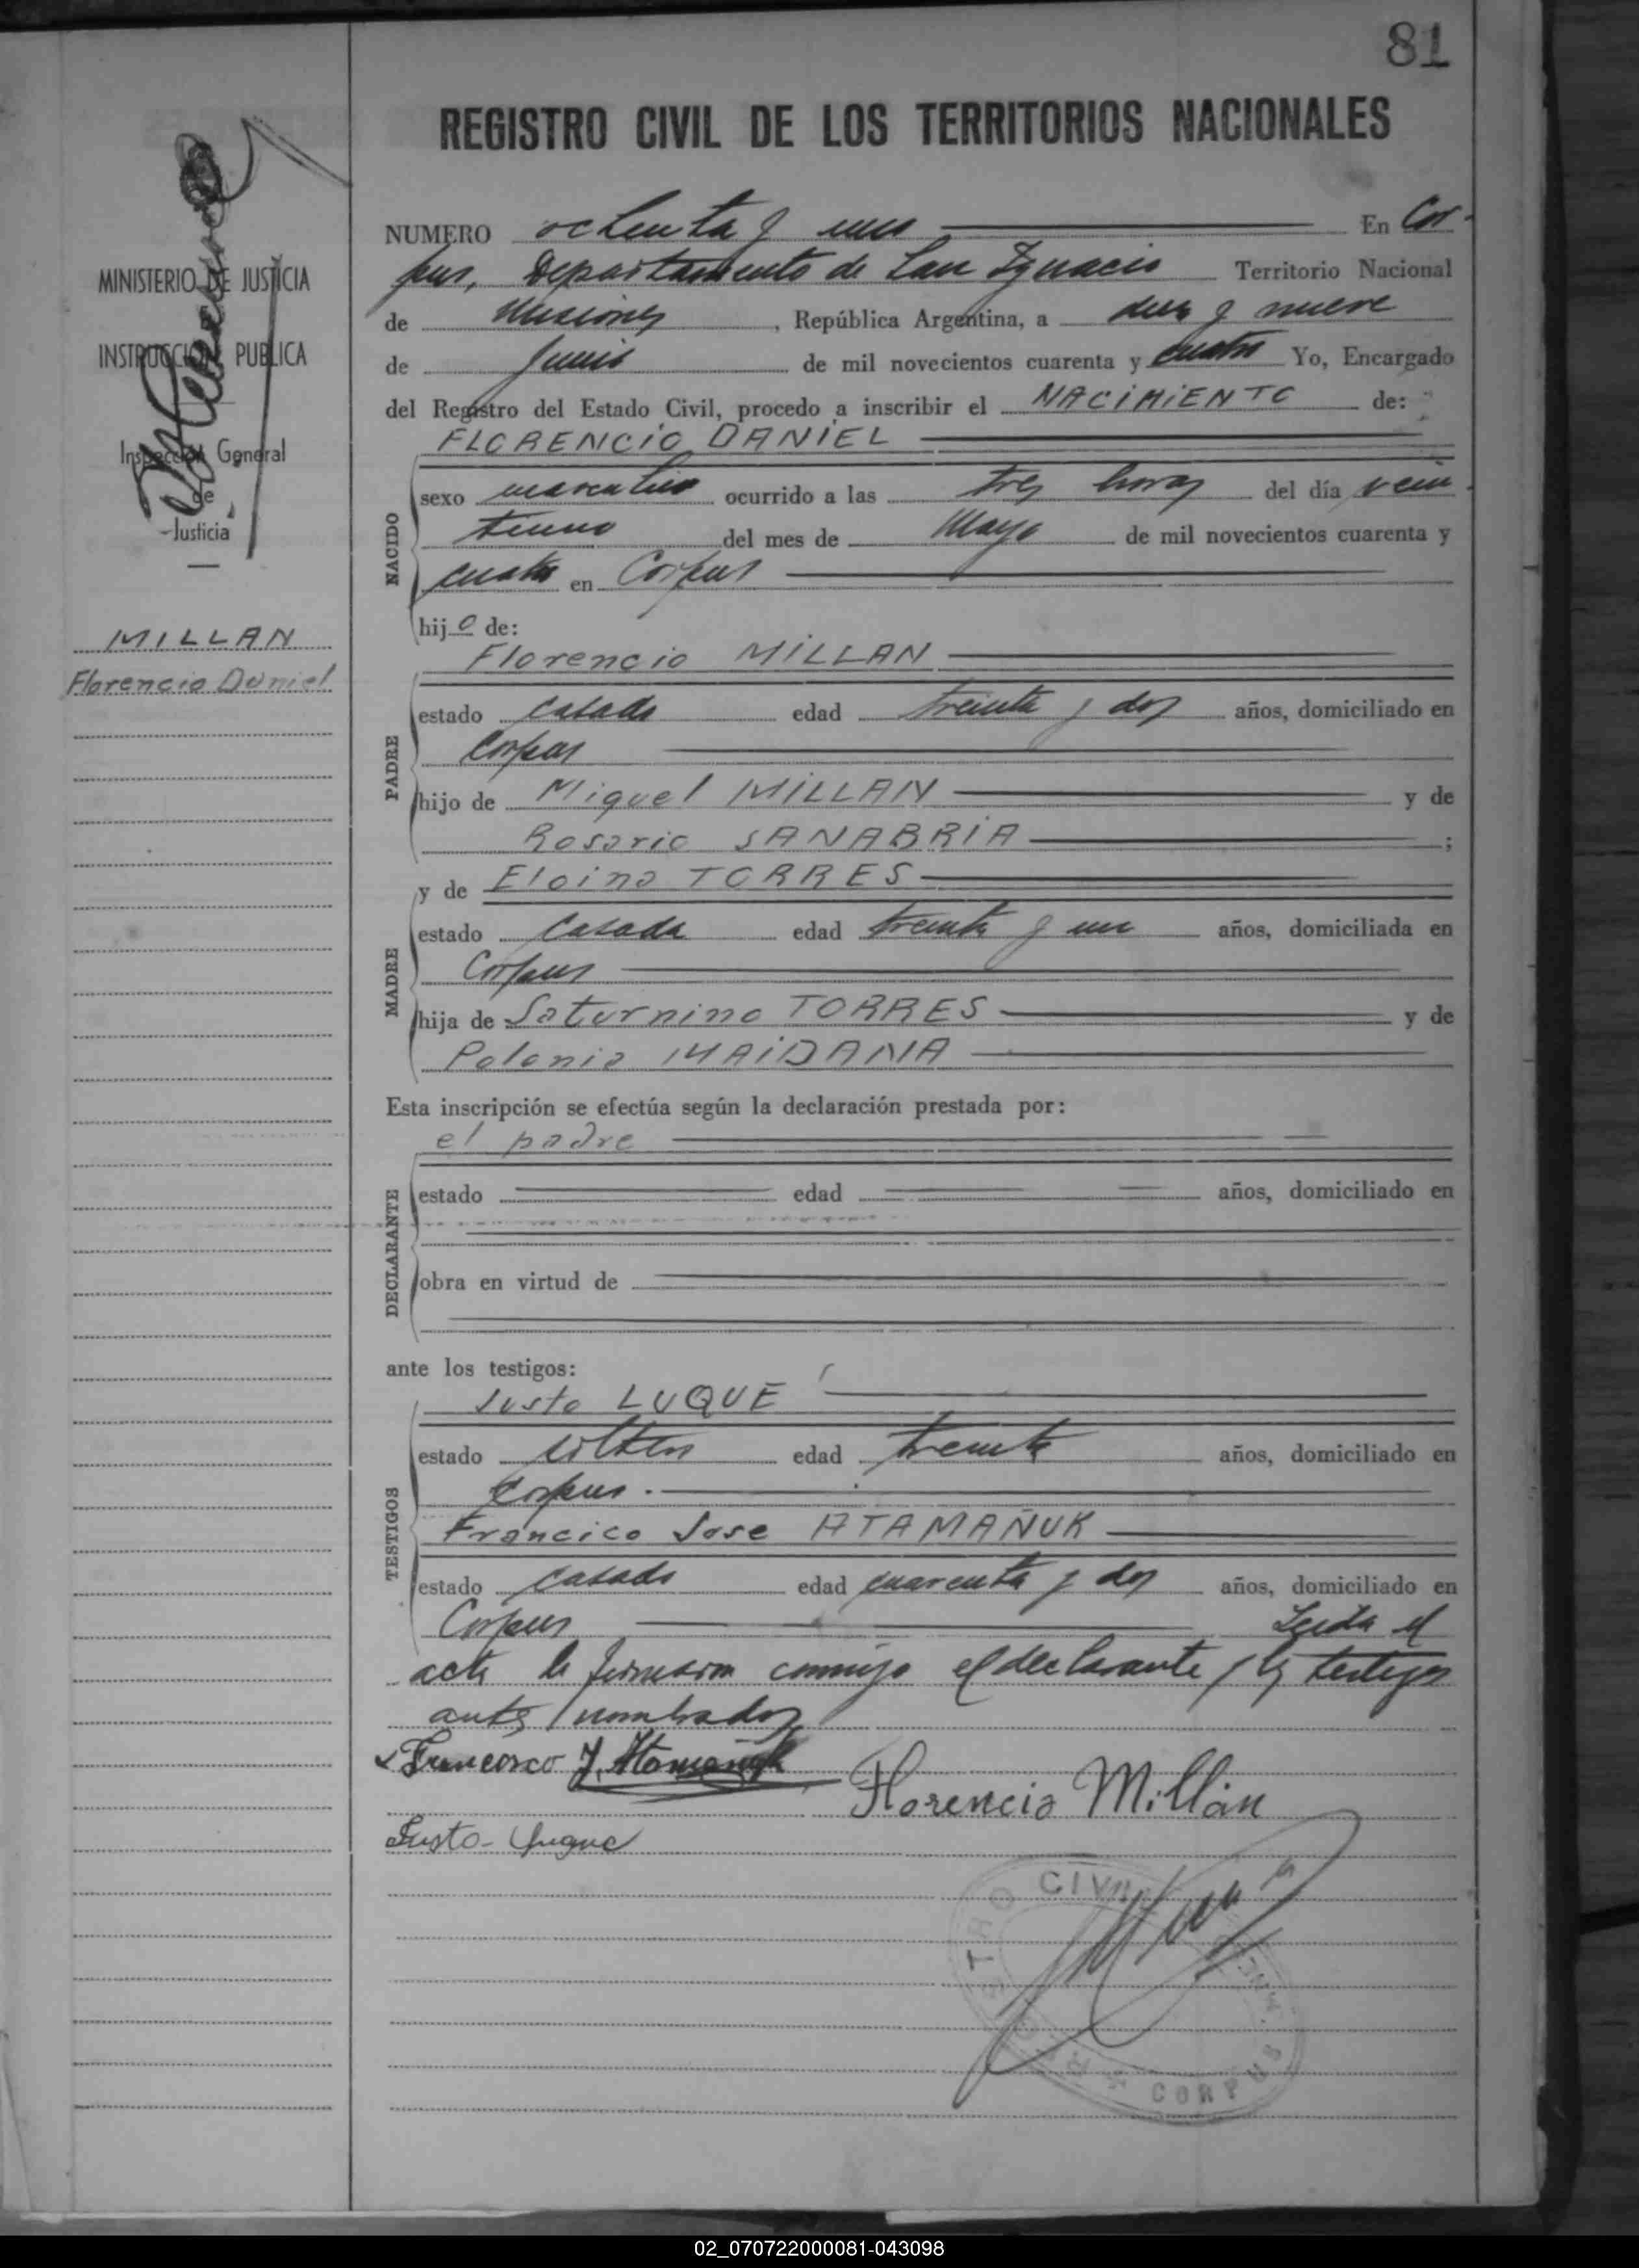 81
REGISTRO CIVIL DE LOS TERRITORIOS NACIONALES
MINISTERIO DE JUSTICIA
INSTRUCCION PUBLICA
Inspección General
de
Justicia
MILLAN
Florencio Daniel
NUMERO ochenta y uno En Cor-
pus, Departamento de San Ignacio Territorio Nacional
de Misiones, República Argentina, a diez y nueve
de Junio de mil novecientos cuarenta y cuatro Yo, Encargado
del Registro del Estado Civil, procedo a inscribir el NACIMIENTO de:
FLORENCIO DANIEL
NACIDO
sexo masculino ocurrido a las tres horas del día vein-
tiuno del mes de Mayo de mil novecientos cuarenta y
cuatro en Corpus
hijo de:
Florencio MILLAN
PADRE
estado casado edad treinta y dos años, domiciliado en
Corpus
hijo de Miguel MILLAN y de
Rosario SANABRIA ;
y de Eloina TORRES
MADRE
estado casada edad treinta y un años, domiciliada en
Corpus
hija de Saturnino TORRES y de
Polonia MAIDANA
Esta inscripción se efectúa según la declaración prestada por:
el padre
DECLARANTE
estado edad años, domiciliado en
obra en virtud de
ante los testigos:
Justo LUQUE
TESTIGOS
estado soltero edad treinta años, domiciliado en
Corpus.
Francico Jose ATAMAÑUK
estado casado edad cuarenta y dos años, domiciliado en
Corpus Leida el
acta la firmaron conmigo el declarante y los testigos
antes nombrados
Francisco J. Atamañuk
Florencio Millán
Justo Luque
REGISTRO CIVIL
CORPUS
02_070722000081-043098